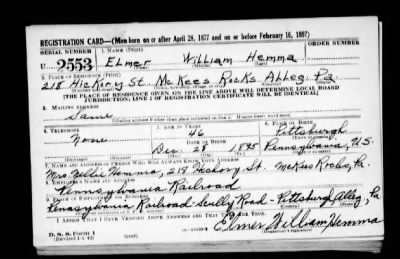 REGISTRATION CARD—(Men born on or after April 28, 1877 and on or before February 16, 1897)
SERIAL NUMBER 1. NAME (Print) ORDER NUMBER
U 2553 Elmer William Hemma
(First) (Middle) (Last)
2. PLACE OF RESIDENCE (Print)
218 Hickory St. McKees Rocks Alleg Pa
(THE PLACE OF RESIDENCE GIVEN ON THE LINE ABOVE WILL DETERMINE LOCAL BOARD
JURISDICTION; LINE 2 OF REGISTRATION CERTIFICATE WILL BE IDENTICAL)
3. MAILING ADDRESS
Same
4. TELEPHONE 5. AGE IN YEARS 6. PLACE OF BIRTH
None 46 Pittsburgh
DATE OF BIRTH
Dec. 28 1895 Pennsylvania, U.S.
7. NAME AND ADDRESS OF PERSON WHO WILL ALWAYS KNOW YOUR ADDRESS
Mrs. Nellie Hemma, 218 Hickory St. McKees Rocks, Pa.
8. EMPLOYER'S NAME AND ADDRESS
Pennsylvania Railroad
9. PLACE OF EMPLOYMENT OR BUSINESS
Pennsylvania Railroad-Scully Road-Pittsburgh, Alleg, Pa
I AFFIRM THAT I HAVE VERIFIED ABOVE ANSWERS AND THAT THEY ARE TRUE.
D. S. S. Form 1
(Revised 4-1-42) (over)
Elmer William Hemma